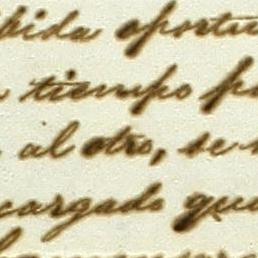 bida oportu
tiempo p
al otro, se
cargado que